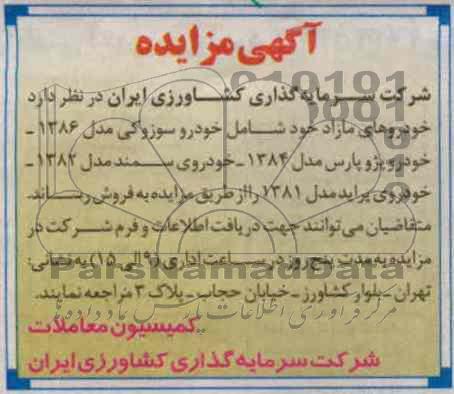 آگهی مزایده
شرکت سرمایه‌گذاری کشاورزی ایران در نظر دارد
خودروهای مازاد خود شامل خودرو سوزوکی مدل ۱۳۸۶ ـ
خودرو پژو پارس مدل ۱۳۸۴ ـ خودروی سمند مدل ۱۳۸۲ ـ
خودروی پراید مدل ۱۳۸۱ را از طریق مزایده به فروش رساند.
متقاضیان می‌توانند جهت دریافت اطلاعات و فرم شرکت در
مزایده به مدت پنج روز در ساعت اداری (۹ الی ۱۵) به نشانی:
تهران ـ بلوار کشاورز ـ خیابان حجاب ـ پلاک ۳ مراجعه نمایند.
کمیسیون معاملات
شرکت سرمایه گذاری کشاورزی ایران
ParsNamadData
مرکز فرآوری اطلاعات پارس نماد داده‌ها